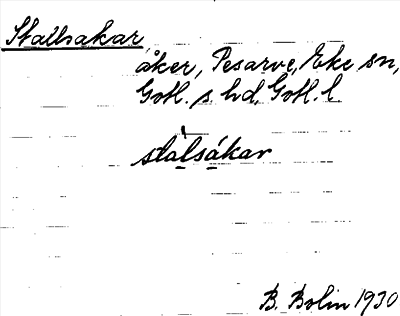 Stallsakar,
åker, Pesarve, Eke sn,
Gotl. s. hd, Gotl. l
stalsákar
B. Bolin 1930